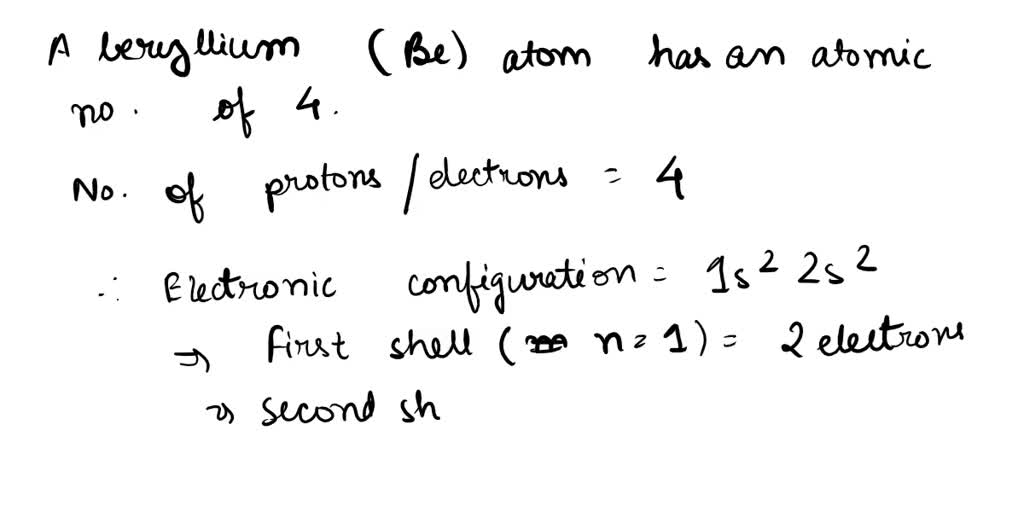 A beryllium (Be) atom has an atomic
no. of 4.
No. of protons / electrons = 4
∴ Electronic configuration = 1s² 2s²
⇒ first shell ( n = 1) = 2 electrons
⇒ second sh